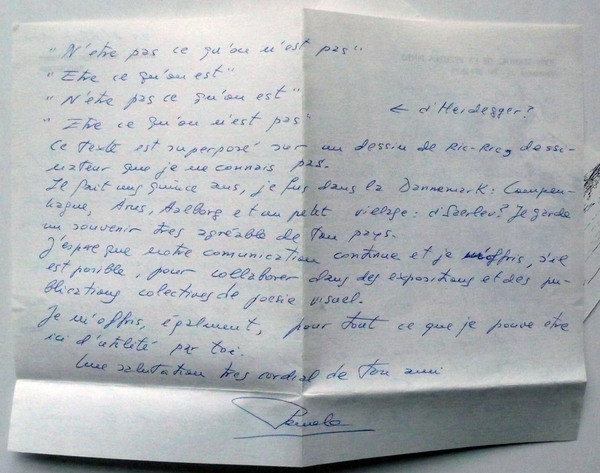 "N'etre pas ce qu'on n'est pas"
"Etre ce qu'on est"
"N'etre pas ce qu'on est"
"Etre ce qu'on n'est pas" ← d'Heidegger?
Ce texte est superposé sur un dessin de Ric-Ric, dessi-
nateur que je ne connais pas.
Il fait uns quince ans, je fus dans la Dannemark: Compen-
hague, Arus, Aalborg et un petit village: d'Szerlev? Je garde
un souvenir tres agréable de ton pays.
J'espere que notre comunication continue et je m'offris, s'il
est posible, pour collaborer dans des expositions et des pu-
blications colectives de poesie visuel.
Je m'offris, épalment, pour tout ce que je pouve etre
ici d'utilité par toi.
Une salutation tres cordial de ton ami